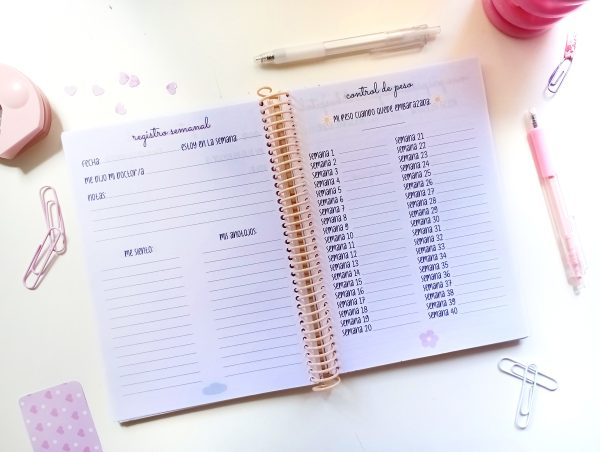 registro semanal
Fecha: estoy en la semana:
me dijo mi doctor/a
notas:
me siento:
mis antojos:
control de peso
mi peso cuando quede embarazada:
semana 1
semana 2
semana 3
semana 4
semana 5
semana 6
semana 7
semana 8
semana 9
semana 10
semana 11
semana 12
semana 13
semana 14
semana 15
semana 16
semana 17
semana 18
semana 19
semana 20
semana 21
semana 22
semana 23
semana 24
semana 25
semana 26
semana 27
semana 28
semana 29
semana 30
semana 31
semana 32
semana 33
semana 34
semana 35
semana 36
semana 37
semana 38
semana 39
semana 40